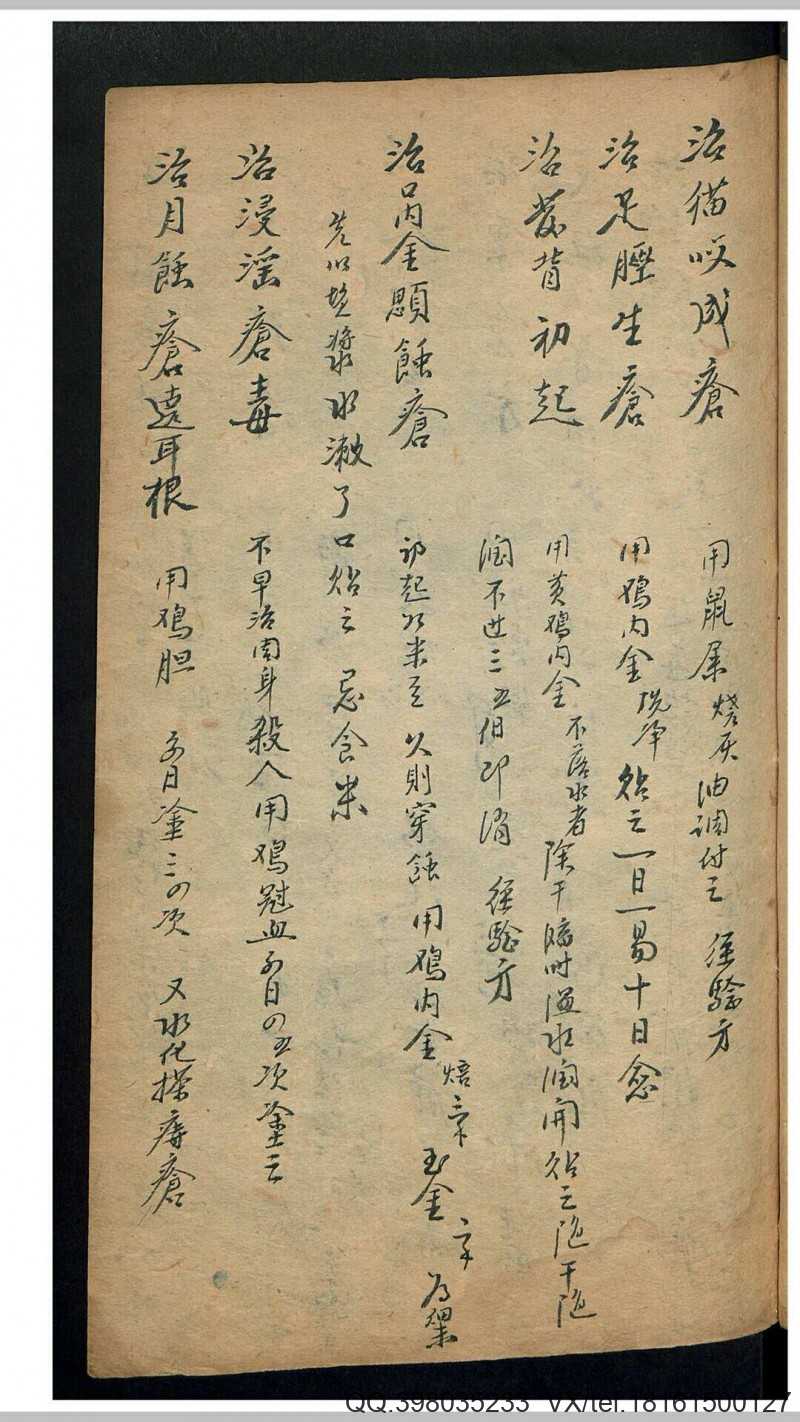 治猫咬成瘡 用鼠屎燒灰油調付之 經驗方
治足脛生瘡 用鸡内金洗净贴之一日一易十日愈
治發背初起 用黄鸡内金不落水者陰干臨时溫水润開贴之随干随
润不过三五個即消 經驗方
治 金 蝕瘡 初起如米豆 久則穿蝕 用鸡内金焙 金 为末
先以塩漿水漱了口贴之 忌食米
治浸滛瘡毒 不早治周身殺人用鸡冠血每日四五次塗之
治月蝕瘡遶耳根 用鸡胆 每日塗三四次 又水化搽痔瘡
QQ.398035233 VX/tel:18161500127